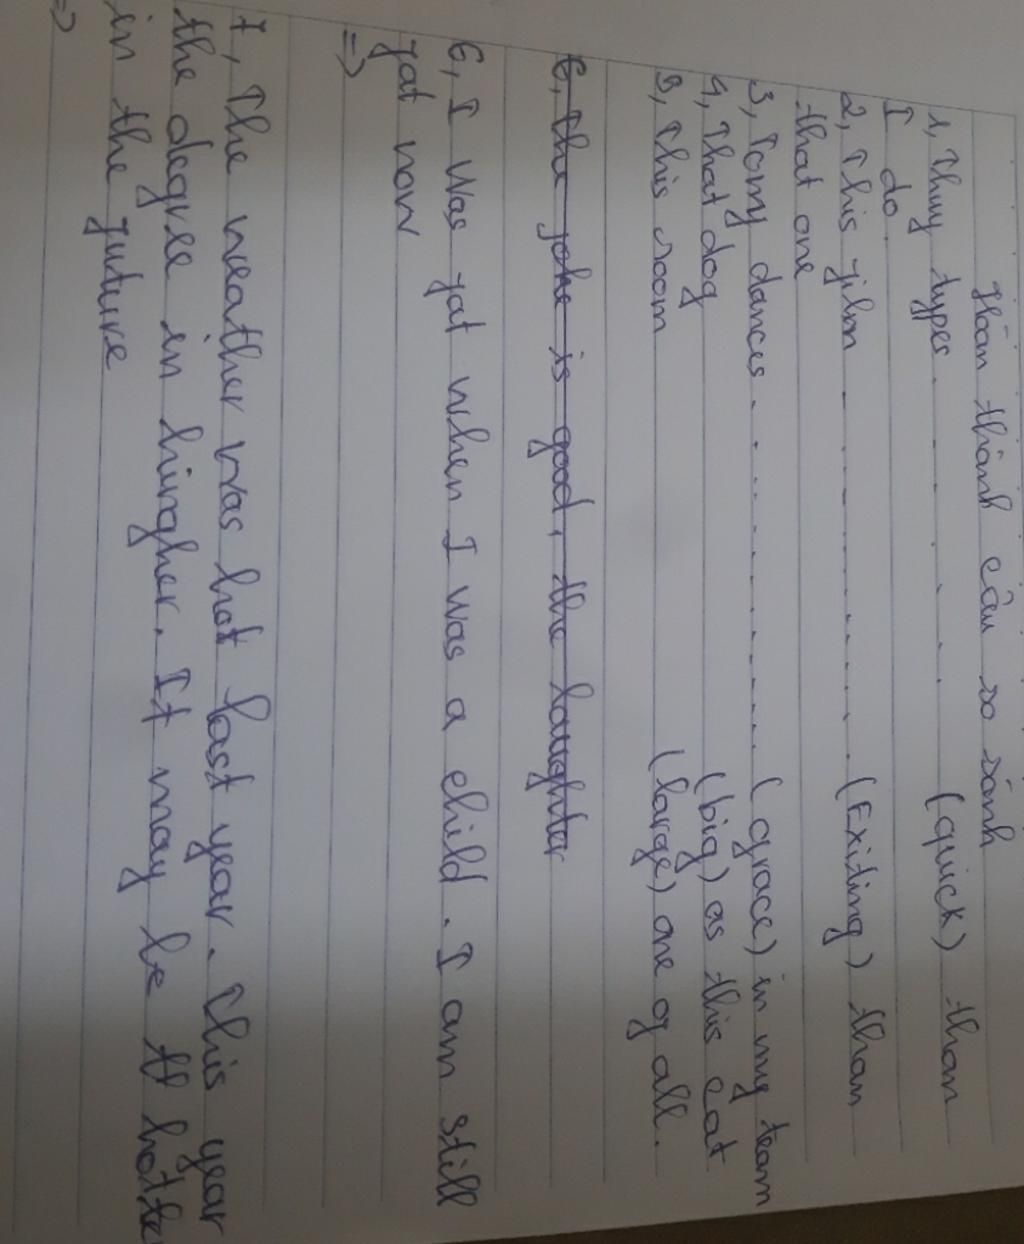 Hoàn thành câu so sánh
1, Thuy types ............ (quick) than
I do.
2, This film ............... (Exiting) than
that one
3, Tomy dances ............... (grace) in my team
4, That dog (big) as this cat
5, This room (large) one of all.
6, the joke is good, the laughter
6, I Was fat when I was a child. I am still
fat now
=>
7, The weather was hot last year. This year
the degree in hingher. It may be tt hotte
in the future
=>